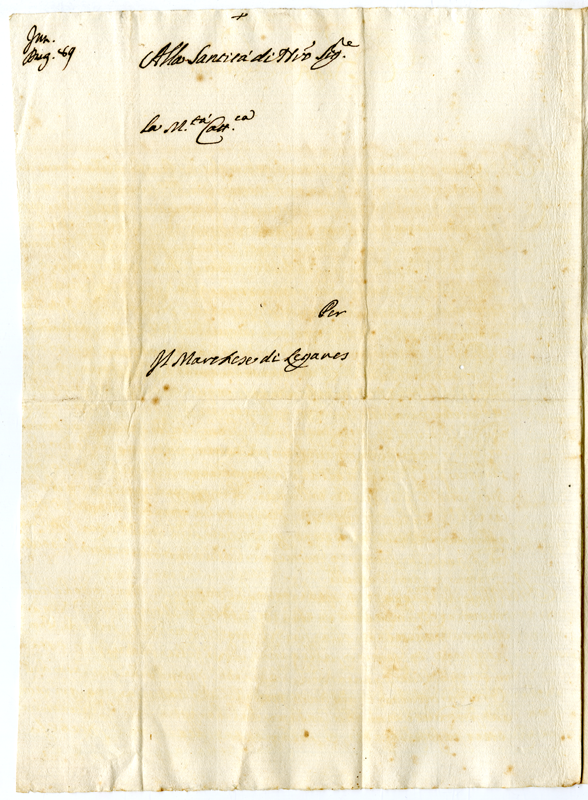 +
Jun.
Aug. 89
Alla Santità di Nro Sig.re
La M.tà Catt.ca
Per
Il Marchese di Leganes